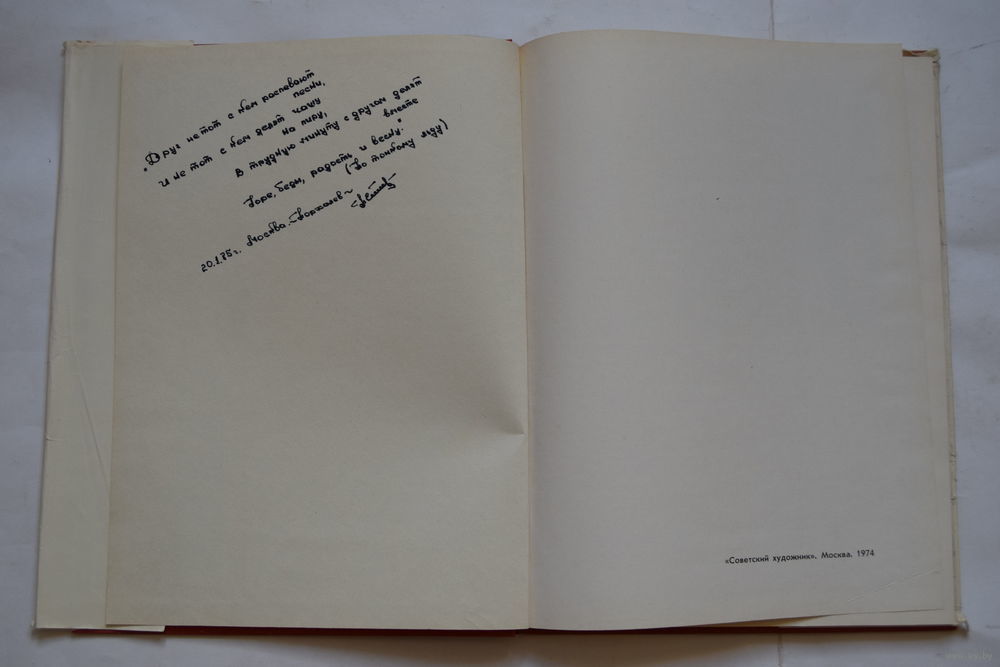 "Друг не тот с кем распевают
песни,
И не тот с кем делят чашу
на пиру,
В трудную минуту с другом делят
вместе
Горе, беды, радость и весну."
(По тонкому льду)
20.1.75г. Москва.
«Советский художник». Москва. 1974